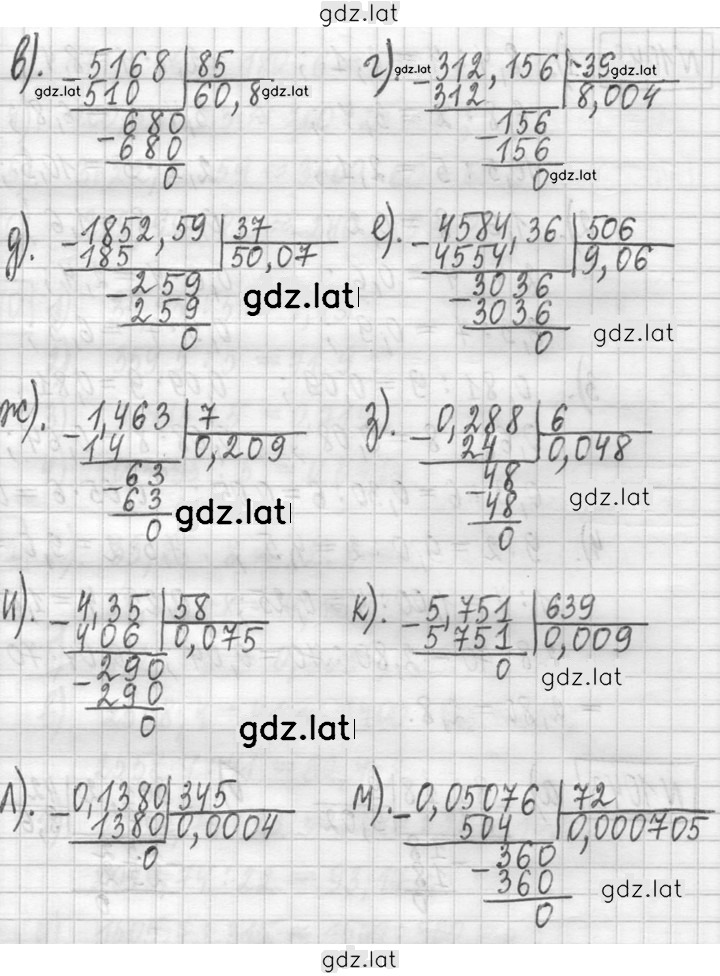 gdz.lat
в). - 5168 | 85 г). - 312,156 | 39
gdz.lat 510 60,8 gdz.lat gdz.lat 312 8,004 gdz.lat
- 680 - 156
680 156
0 0 gdz.lat
д). - 1852,59 | 37 е). - 4584,36 | 506
185 50,07 4554 9,06
- 259 - 3036
259 3036
0 0
gdz.lat gdz.lat
ж). - 1,463 | 7 з). - 0,288 | 6
14 0,209 24 0,048
- 63 - 48
63 48
0 0
gdz.lat gdz.lat
и). - 4,35 | 58 к). - 5,751 | 639
406 0,075 5751 0,009
- 290 0
290 gdz.lat
0
gdz.lat
л). - 0,1380 | 345 м). - 0,05076 | 72
1380 0,0004 504 0,000705
0 - 360
360
0
gdz.lat
gdz.lat